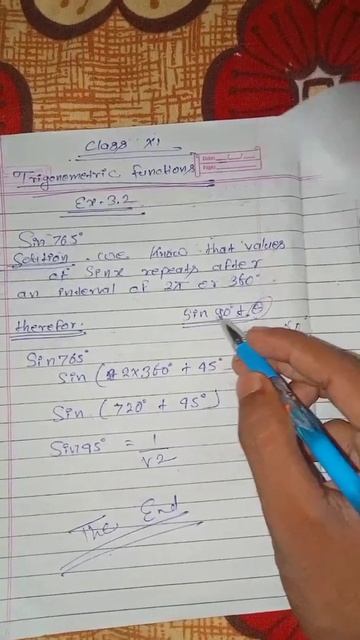 Class XI
Date: / /
Page:
Trigonometric functions
Ex. 3.2
Sin 765°
Solution we know that values
of Sinx repeats after
an interval of 2π or 360°
Sin 90° + θ
therefor:
Sin 765°
Sin (2x360° + 45°
Sin (720° + 45°)
Sin 45° = 1/√2
The End